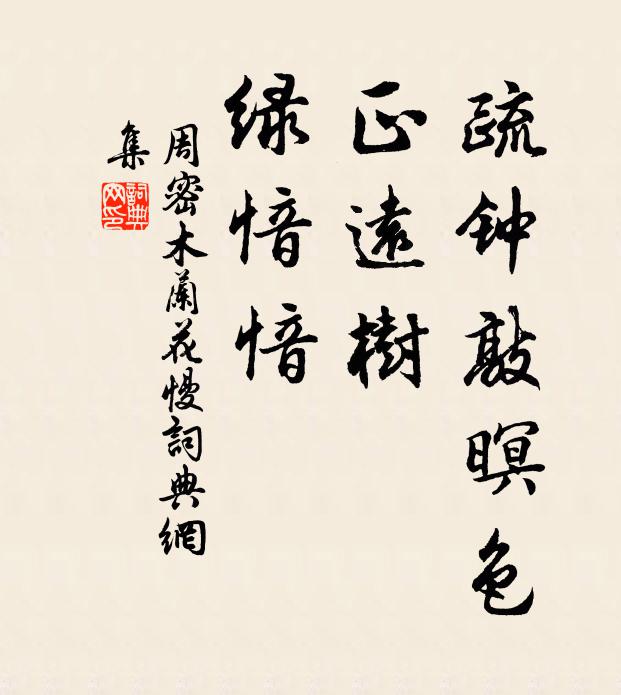 疏钟敲暝色
正遠樹
绿愔愔
周密木蘭花慢詞典網
集
詞典网印